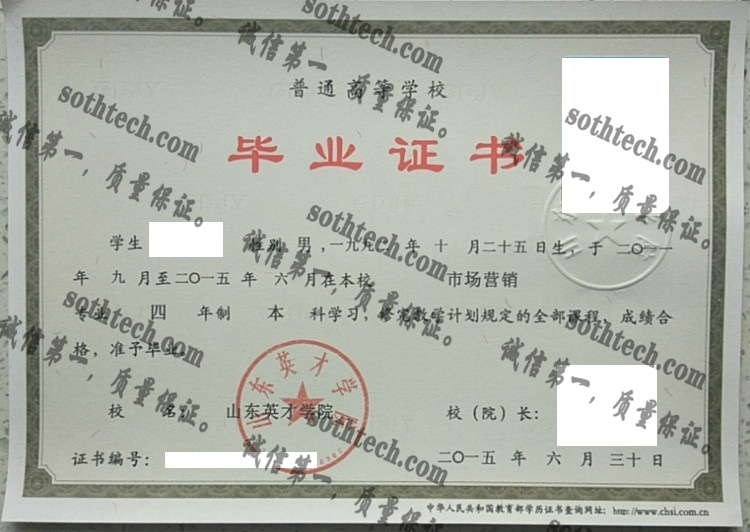 普通高等学校
毕业证书
学生 性别 男，一九九二年 十 月二十五日生，于 二〇一一
年 九 月至二〇一五 年 六 月在本校 市场营销
专业 四 年制 本 科学习，修完教学计划规定的全部课程、成绩合
格，准予毕业。
校 名： 山东英才学院 校（院）长：
证书编号： 二〇一五 年 六 月 三十 日
山东英才学院
中华人民共和国教育部学历证书查询网址：http://www.chsi.com.cn
sothtech.com
诚信第一，质量保证。
sothtech.com
诚信第一，质量保证。
sothtech.com
诚信第一，质量保证。
sothtech.com
诚信第一，质量保证。
sothtech.com
诚信第一，质量保证。
sothtech.com
诚信第一，质量保证。
sothtech.com
诚信第一，质量保证。